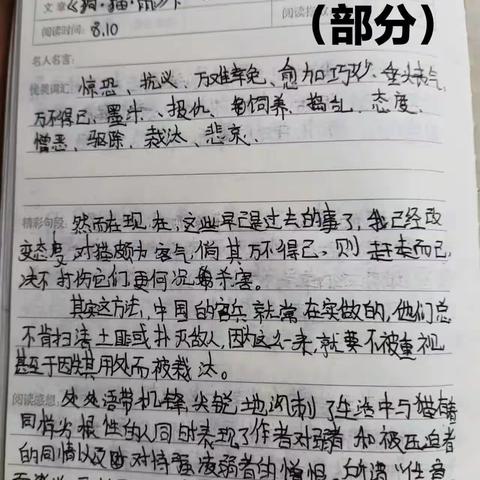 文章《狗·猫·鼠》
(部分)
阅读时间 8.10
名人名言:
优美词汇: 惊恐、抗议、万难幸免、愈加巧妙、垂头丧气
万不得已、墨斗、报仇、饲养、捣乱、态度、
憎恶、驱除、裁汰、悲哀、
精彩句段: 然而在现在,这些早已是过去的事了,我已经改
变态度,对猫颇为客气,倘其万不得已,则赶走而已,
决不打伤它们更何况杀害。
其实这方法,中国的官兵就常在实做的,他们总
不肯扫清土匪或扑灭敌人,因为这么一来,就要不被重视,
甚至于因失其用处而被裁汰。
阅读感想: 处处语带机锋,尖锐地讽刺了生活中与猫
同样劣根性的人同时表现了作者对弱者和被压迫者
的同情以及对恃强凌弱者的憎恨。所谓“任意